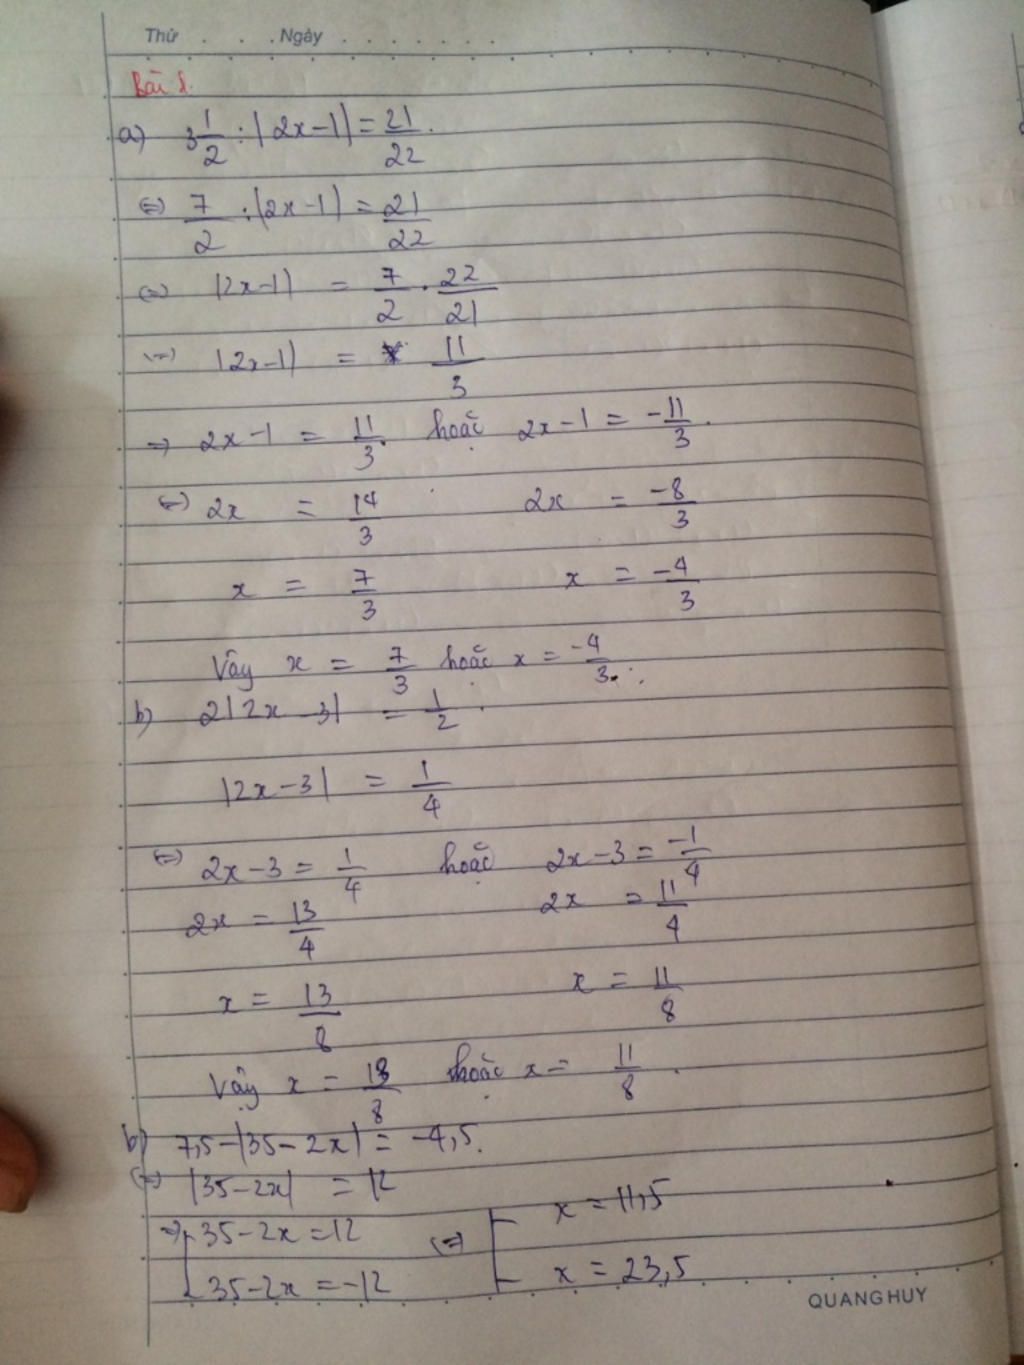 Thứ . . . Ngày . . . . . . .
Bài 1.
a) 3 1/2 : |2x-1| = 21/22.
(=) 7/2 : |2x-1| = 21/22
(=) |2x-1| = 7/2 . 22/21
(=) |2x-1| = 11/3
=> 2x-1 = 11/3. hoặc 2x-1 = -11/3.
(=) 2x = 14/3 2x = -8/3
x = 7/3 x = -4/3
Vậy x = 7/3 hoặc x = -4/3.
b) 2|2x-3| = 1/2.
|2x-3| = 1/4
(=) 2x-3 = 1/4 hoặc 2x-3 = -1/4
2x = 13/4 2x = 11/4
x = 13/8 x = 11/8
Vậy x = 13/8 hoặc x = 11/8.
b) 7,5-|35-2x| = -4,5.
(=) |35-2x| = 12
=> [35-2x = 12 (=) [ x = 11,5
35-2x = -12 x = 23,5
QUANG HUY